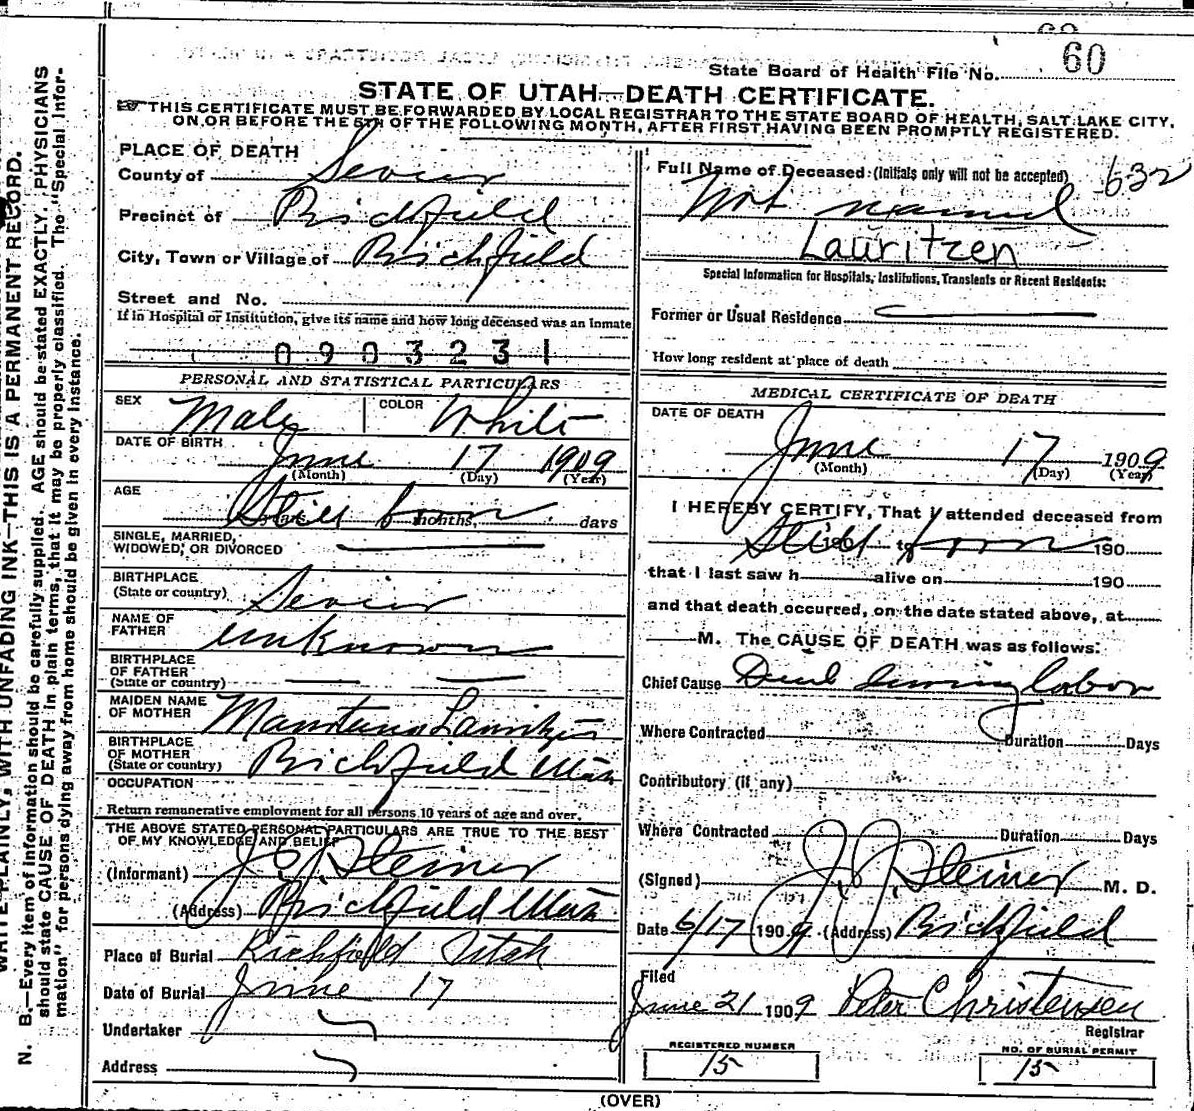 60
State Board of Health File No. 60
STATE OF UTAH—DEATH CERTIFICATE.
THIS CERTIFICATE MUST BE FORWARDED BY LOCAL REGISTRAR TO THE STATE BOARD OF HEALTH, SALT LAKE CITY,
ON OR BEFORE THE 5TH OF THE FOLLOWING MONTH, AFTER FIRST HAVING BEEN PROMPTLY REGISTERED.
PLACE OF DEATH
County of Sevier
Precinct of Richfield
City, Town or Village of Richfield
Street and No.
If in Hospital or Institution, give its name and how long deceased was an inmate
0903231
PERSONAL AND STATISTICAL PARTICULARS
SEX Male COLOR White
DATE OF BIRTH June 17 1909
(Month) (Day) (Year)
AGE Still born
years months, days
SINGLE, MARRIED,
WIDOWED, OR DIVORCED
BIRTHPLACE
(State or country) Sevier
NAME OF
FATHER unknown
BIRTHPLACE
OF FATHER
(State or country)
MAIDEN NAME
OF MOTHER Lauritzen
BIRTHPLACE
OF MOTHER
(State or country) Richfield Utah
OCCUPATION
Return remunerative employment for all persons 10 years of age and over.
THE ABOVE STATED PERSONAL PARTICULARS ARE TRUE TO THE BEST
OF MY KNOWLEDGE AND BELIEF
(Informant) J.J. Steiner
(Address) Richfield Utah
Place of Burial Richfield Utah
Date of Burial June 17
Undertaker
Address
Full Name of Deceased (Initials only will not be accepted) 632
Not named
Lauritzen
Special Information for Hospitals, Institutions, Transients or Recent Residents:
Former or Usual Residence
How long resident at place of death
MEDICAL CERTIFICATE OF DEATH
DATE OF DEATH
June 17 1909
(Month) (Day) (Year)
I HEREBY CERTIFY, That I attended deceased from
Still born 190 to 190
that I last saw h alive on 190
and that death occurred, on the date stated above, at
M. The CAUSE OF DEATH was as follows:
Chief Cause Died during labor
Where Contracted Duration Days
Contributory (if any)
Where Contracted Duration Days
(Signed) J.J. Steiner M. D.
Date 6/17 1909 (Address) Richfield
Filed
June 21 1909 Peter Christensen
Registrar
REGISTERED NUMBER
15
NO. OF BURIAL PERMIT
15
(OVER)
WRITE PLAINLY, WITH UNFADING INK—THIS IS A PERMANENT RECORD.
N. B.—Every item of information should be carefully supplied. AGE should be stated EXACTLY. PHYSICIANS
should state CAUSE OF DEATH in plain terms, that it may be properly classified. The "Special Infor-
mation" for persons dying away from home should be given in every instance.